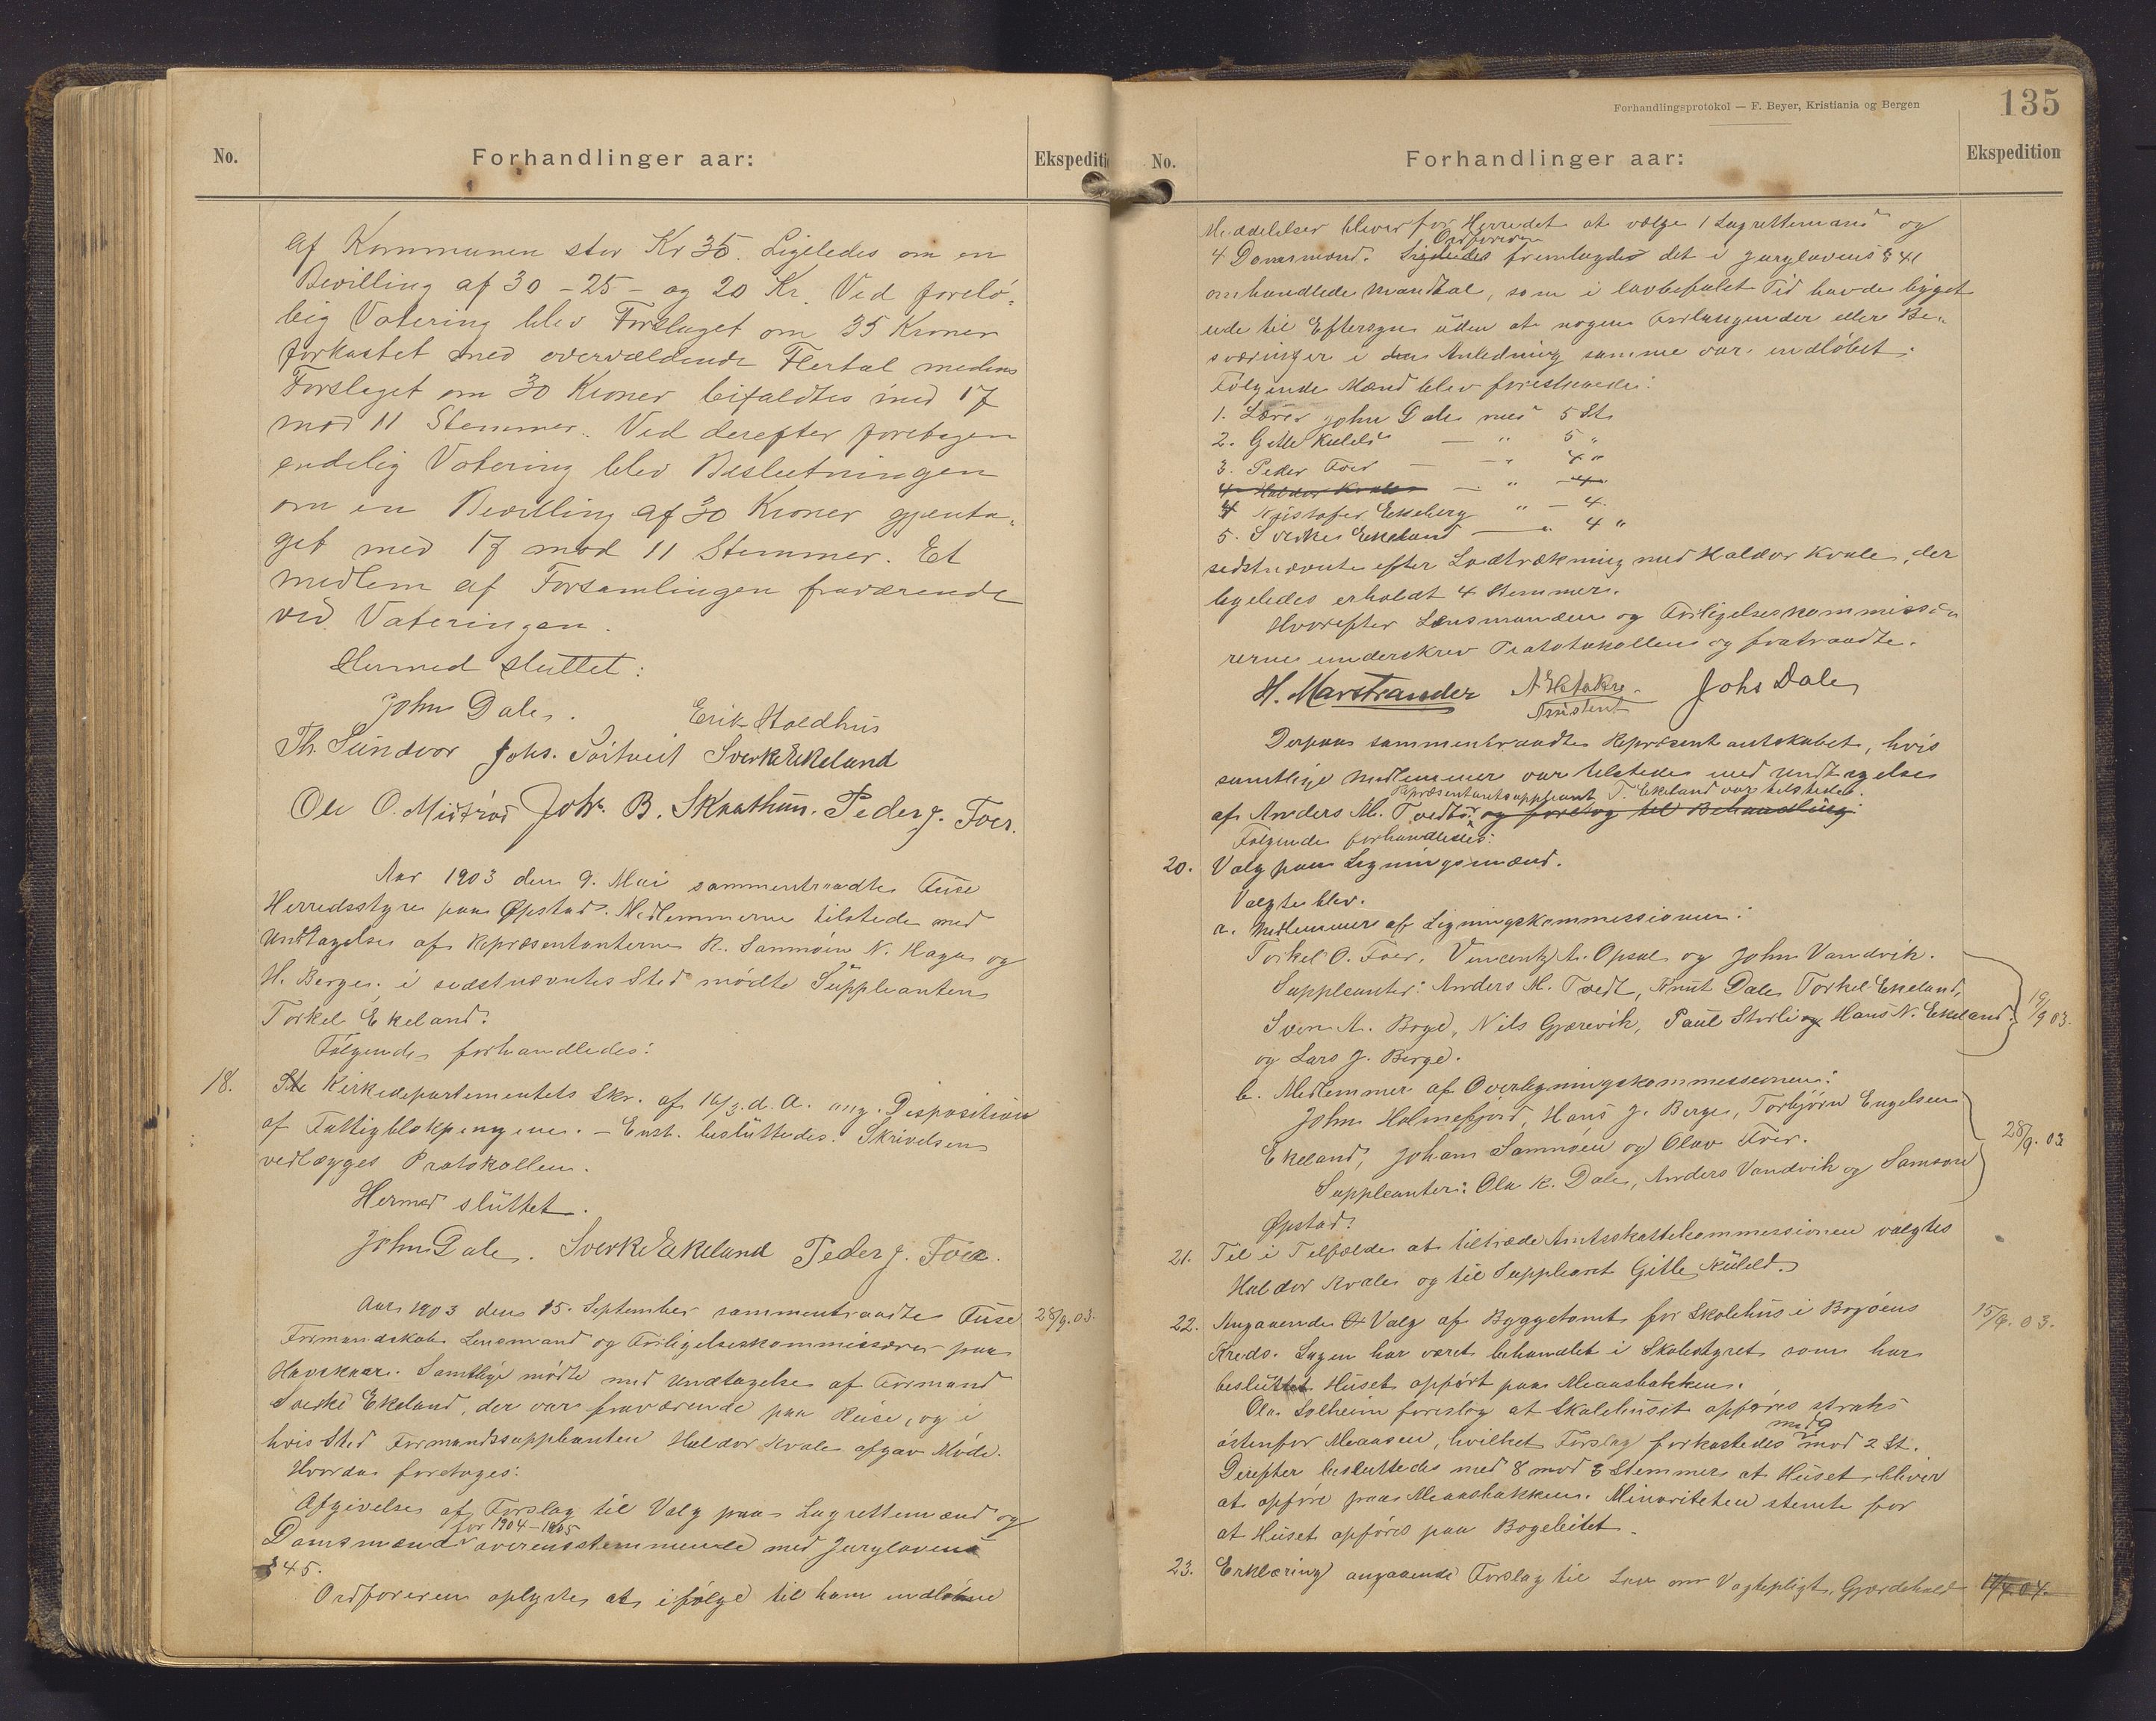 No.
Forhandlinger aar:
Ekspediti
af Kommunen stor Kr 35. Ligeledes om en
Bevilling af 30 - 25 - og 20 Kr. Ved forelø-
big Votering blev Forslaget om 35 Kroner
forkastet med overvældende Flertal medens
Forslaget om 30 Kroner bifaldtes med 17
mod 11 Stemmer. Ved derefter foretagen
endelig Votering blev Beslutningen
om en Bevilling af 30 Kroner gjenta-
get med 17 mod 11 Stemmer. Et
medlem af Forsamlingen fraværende
ved Voteringen.
Hermed sluttet:
John Dale. Erik Holdhus
Th. Sundvor Johs. Tørtveit Sverke Ekeland
Ole O. Midtrød Johs. B. Skaathun. Peder J. Foer.
Aar 1903 den 9. Mai sammentraadte Fuse
Herredsstyre paa Øpstad. Medlemmerne tilstede med
Undtagelse af Repræsentanterne R. Samnøen N. Haga og
H. Berge. i sidstnævntes Sted mødte Suppleanten
Torkel Ekeland.
Følgende forhandledes:
18. Kirkedepartementets Skr. af 16/3 d. A. ang. Disposition
af Fattigblokpengene. - Enst. besluttedes: Skrivelsen
vedlægges Protokollen.
Hermed sluttet.
John Dale. Sverke Ekeland Peder J. Foer.
Aar 1903 den 15. September sammentraadte Fuse 28/9.03.
Formandskab Lensmand og Forligelseskommissærer paa
Havskaar. Samtlige mødte med Undtagelse af Formand
Sverke Ekeland, der var fraværende paa Reise, og i
hvis Sted Formandssuppleanten Haldor Kvale afgav Møde.
Hvorda foretoges:
Afgivelse af Forslag til Valg paa Lagrettemænd og
for 1904-1905
Domsmænd overensstemmende med Jurylovens
§ 45.
Ordføreren oplyste at ifølge til ham indløbne
Forhandlingsprotokol — F. Beyer, Kristiania og Bergen
135
No.
Forhandlinger aar:
Ekspedition
Meddelelser bliver for Herredet at vælge 1 Lagrettemand og
Ordføreren
4 Domsmænd. Ligeledes fremlagdes det i Jurylovens § 41
omhandlede Mandtal, som i lovbefalet Tid havde ligget
ude til Eftersyn uden at nogen Forlangender eller Be-
sværinger i den Anledning samme var indløbet.
Følgende Mænd blev foreslaaede:
1. Lærer John Dale med 5 St.
2. Gitle Kuleld — " 5 "
3. Peder Foer — — " 4 "
4 Haldor Kvale — " 4
4 Kristofer Ekeberg " — 4.
5. Sverke Ekeland — " 4 "
sidstnævnte efter Lodtrækning med Haldor Kvale, der
ligeledes erholdt 4 Stemmer.
Hvorefter Lensmanden og Forligelseskommissæ-
rerne underskrev Protokollen og fratraadte.
H. Marstrander Johs Dale
Assistent
Derpaa sammentraadte Repræsentantskabet, hvis
samtlige Medlemmer var tilstede med Undtagelse
Repræsentantsuppleant T. Ekeland var tilstede.
af Anders M. Tvedt. og foretog til Behandling
Følgende forhandledes:
20. Valg paa Ligningsmænd.
Valgte blev.
a. Medlemmer af Ligningskommissionen:
Torkel O. Foer, Vincentz A. Opsal og John Vandvik.
Suppleanter: Anders M. Tvedt, Knut Dale Torkel Ekeland,
Sven A. Boge, Nils Gjærevik, Paul Storli og Hans N. Ekeland. 19/9 03.
og Lars J. Berge.
b. Medlemmer af Overligningskommissionen:
John Holmefjord, Hans J. Berge, Torbjørn Engelsen
Ekeland, Johans Samnøen og Olav Foer. 28/9. 03
Suppleanter: Ola K. Dale, Anders Vandvik og Samson
Øpstad.
21. Til i Tilfælde at tiltræde Amtsskattekommissionen valgtes
Haldor Kvale og til Suppleant Gitle Kuleld.
22. Angaaende Valg af Byggetomt for Skolehus i Bogøens 15/9. 03.
Kreds. Sagen har været behandlet i Skolestyret som har
besluttet Huset opført paa Meaasbakken.
Ola Solheim foreslog at Skolehuset opføres straks
med 9
østenfor Meaasen, hvilket Forslag forkastedes mod 2 St.
Derefter besluttedes med 8 mod 3 Stemmer at Huset bliver
at opføre paa Meaasbakken. Minoriteten stemte for
at Huset opføres paa Bogeleitet.
23. Erklæring angaaende Forslag til Lov om Vogtepligt, Gjærdehold 17/4.04.